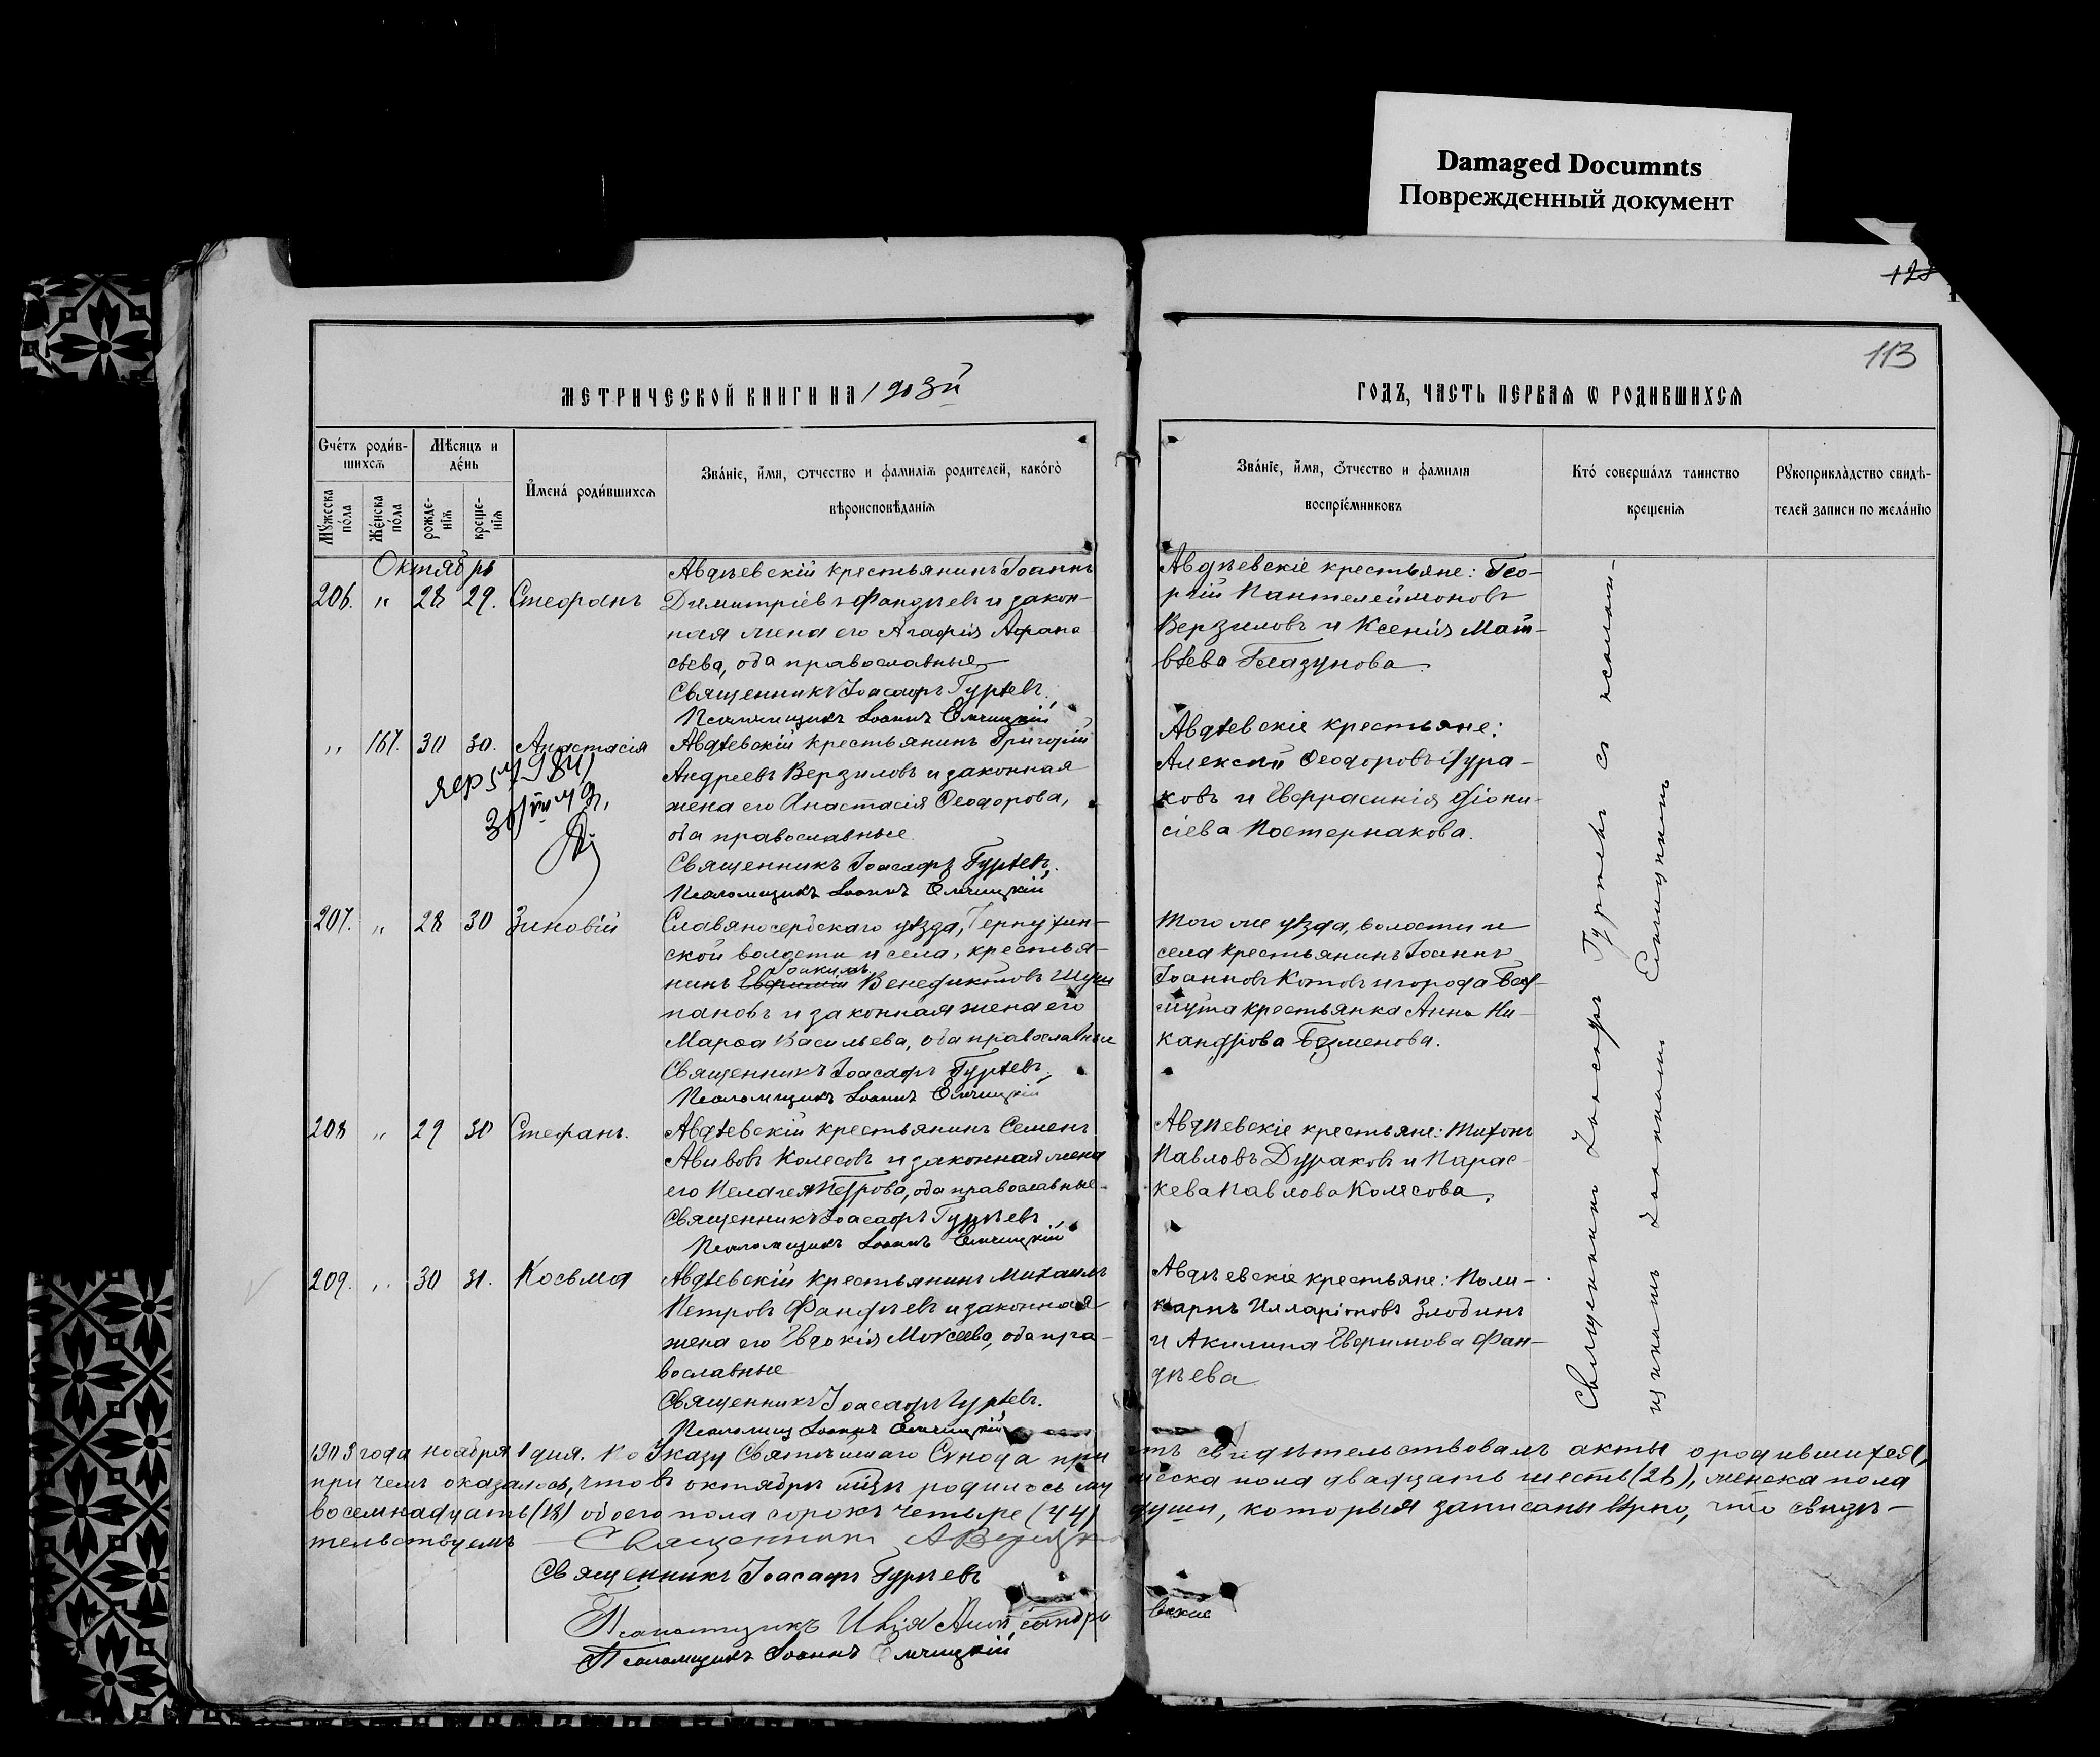 Damaged Documnts
Поврежденный документ
128
113
МЕТРИЧЕСКОЙ КНИГИ НА 1903й
ГОДЪ, ЧАСТЬ ПЕРВАѦ Ѡ РОДИВШИХСѦ
Сче́тъ роди́в-
шихсѧ
Мѣсяцъ и
де́нь
Мꙋ́жеска
по́ла
Же́нска
по́ла
рожде-
нїѧ
креще-
нїѧ
И҆мена́ роди́вшихсѧ
Зва́нїе, и҆́мя, ѻтчество и фамилїѧ родителей, како́гѡ
вѣроисповѣ́данїѧ
Зва́нїе, и҆́мя, ѻтчество и фамилїя
воспрїе́мниковъ
Кто́ соверша́лъ таинство
крещенїѧ
Рꙋкоприкла̀дство свидѣ-
телей записи по жела́нїю
Октябрь
206. " 28 29. Стефанъ
Авдѣевскій крестьянинъ Іоаннъ
Димитріевъ Фандѣевъ и закон-
ная жена его Агафія Афана
сьева, оба православные
Священникъ Іоасафъ Гурѣевъ.
Псаломщикъ Іоаннъ
Авдѣевскіе крестьяне: Геор-
гій Пантелеймоновъ
Верзиловъ и Ксенія Мат-
вѣева Глазунова.
" 167. 30 30. Анастасія
Авдѣевскій крестьянинъ Григорій
Андреевъ Верзиловъ и законная
жена его Анастасія Ѳеодорова,
оба православные.
Священникъ Іоасафъ Гурѣевъ.
Псаломщикъ Іоаннъ
Авдѣевскіе крестьяне:
Алексѣй Ѳеодоровъ Дура-
ковъ и Евфрасинія Діони-
сіева Постернакова.
207. " 28 30 Зиновій
Славяносербскаго уѣзда,
ской волости и села, крестья-
нинъ Іоакимъ Венедиктовъ
пановъ и законная жена его
Марѳа Васильева, оба православные
Священникъ Іоасафъ Гурѣевъ.
Псаломщикъ Іоаннъ
Того же уѣзда, волости и
села крестьянинъ Іоаннъ
Іоанновъ Котовъ и города Бах-
мута крестьянка Анна Ни-
кандрова
208 " 29 30 Стефанъ.
Авдѣевскій крестьянинъ Семенъ
Авивовъ Колесовъ и законная жена
его Пелагея Петрова, оба православные.
Священникъ Іоасафъ Гурѣевъ
Псаломщикъ Іоаннъ
Авдѣевскіе крестьяне: Тихонъ
Павловъ Дураковъ и Парас-
кева Павлова Колесова.
209. " 30 31. Косьма
Авдѣевскій крестьянинъ Михаилъ
Петровъ Фандѣевъ и законная
жена его Евдокія Моѵсеева, оба пра-
вославные
Священникъ Іоасафъ Гурѣевъ.
Іоаннъ
Авдѣевскіе крестьяне: Поли-
карпъ Илларіоновъ Злобинъ
и Акилина Евфимова Фан-
дѣева
Священникъ Іоасафъ Гурѣевъ съ псалом-
щикомъ Іоанномъ
1903 года ноября 1 дня. По Указу Святѣйшаго Сѵнода при
тъ свидѣтельствовалъ акты о родившихся,
при чемъ оказалось, что въ октябрѣ мѣсяцѣ родилось му
жеска пола двадцать шесть (26), женска пола
восемнадцать (18) обоего пола сорокъ четыре (44)
души, которыя записаны вѣрно, что свидѣ-
тельствуемъ Священникъ
Священникъ Іоасафъ Гурѣевъ
Псаломщикъ
Псаломщикъ Іоаннъ